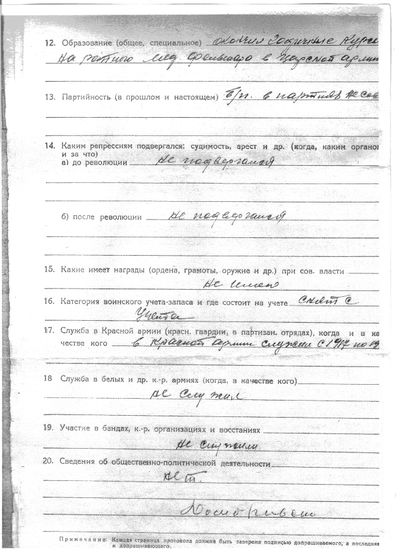 12. Образование (общее, специальное) окончил 
на ротного мед фельдшера в царской армии
13. Партийность (в прошлом и настоящем) б/п. в партиях не сос
14. Каким репрессиям подвергался: судимость, арест и др. (когда, каким органом
и за что)
а) до революции не подвергался
б) после революции не подвергался
15. Какие имеет награды (ордена, грамоты, оружие и др.) при сов. власти
не имею
16. Категория воинского учета-запаса и где состоит на учете снят с
учета
17. Служба в Красной армии (красн. гвардии, в партизан. отрядах), когда и в ка
честве кого в Красной армии служил с 1917 по
18 Служба в белых и др. к.-р. армиях (когда, в качестве кого)
не служил
19. Участие в бандах, к.-р. организациях и восстаниях
не служил
20. Сведения об общественно-политической деятельности
нет
Примечание: Каждая страница протокола должна быть заверена подписью допрашиваемого, а последняя
и допрашивающего.